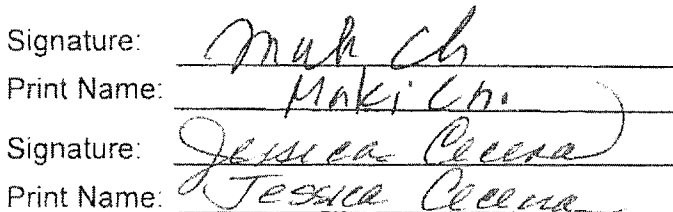 Signature:
Print Name: Maki Ch.
Signature: Jessica Cecena
Print Name: Jessica Cecena